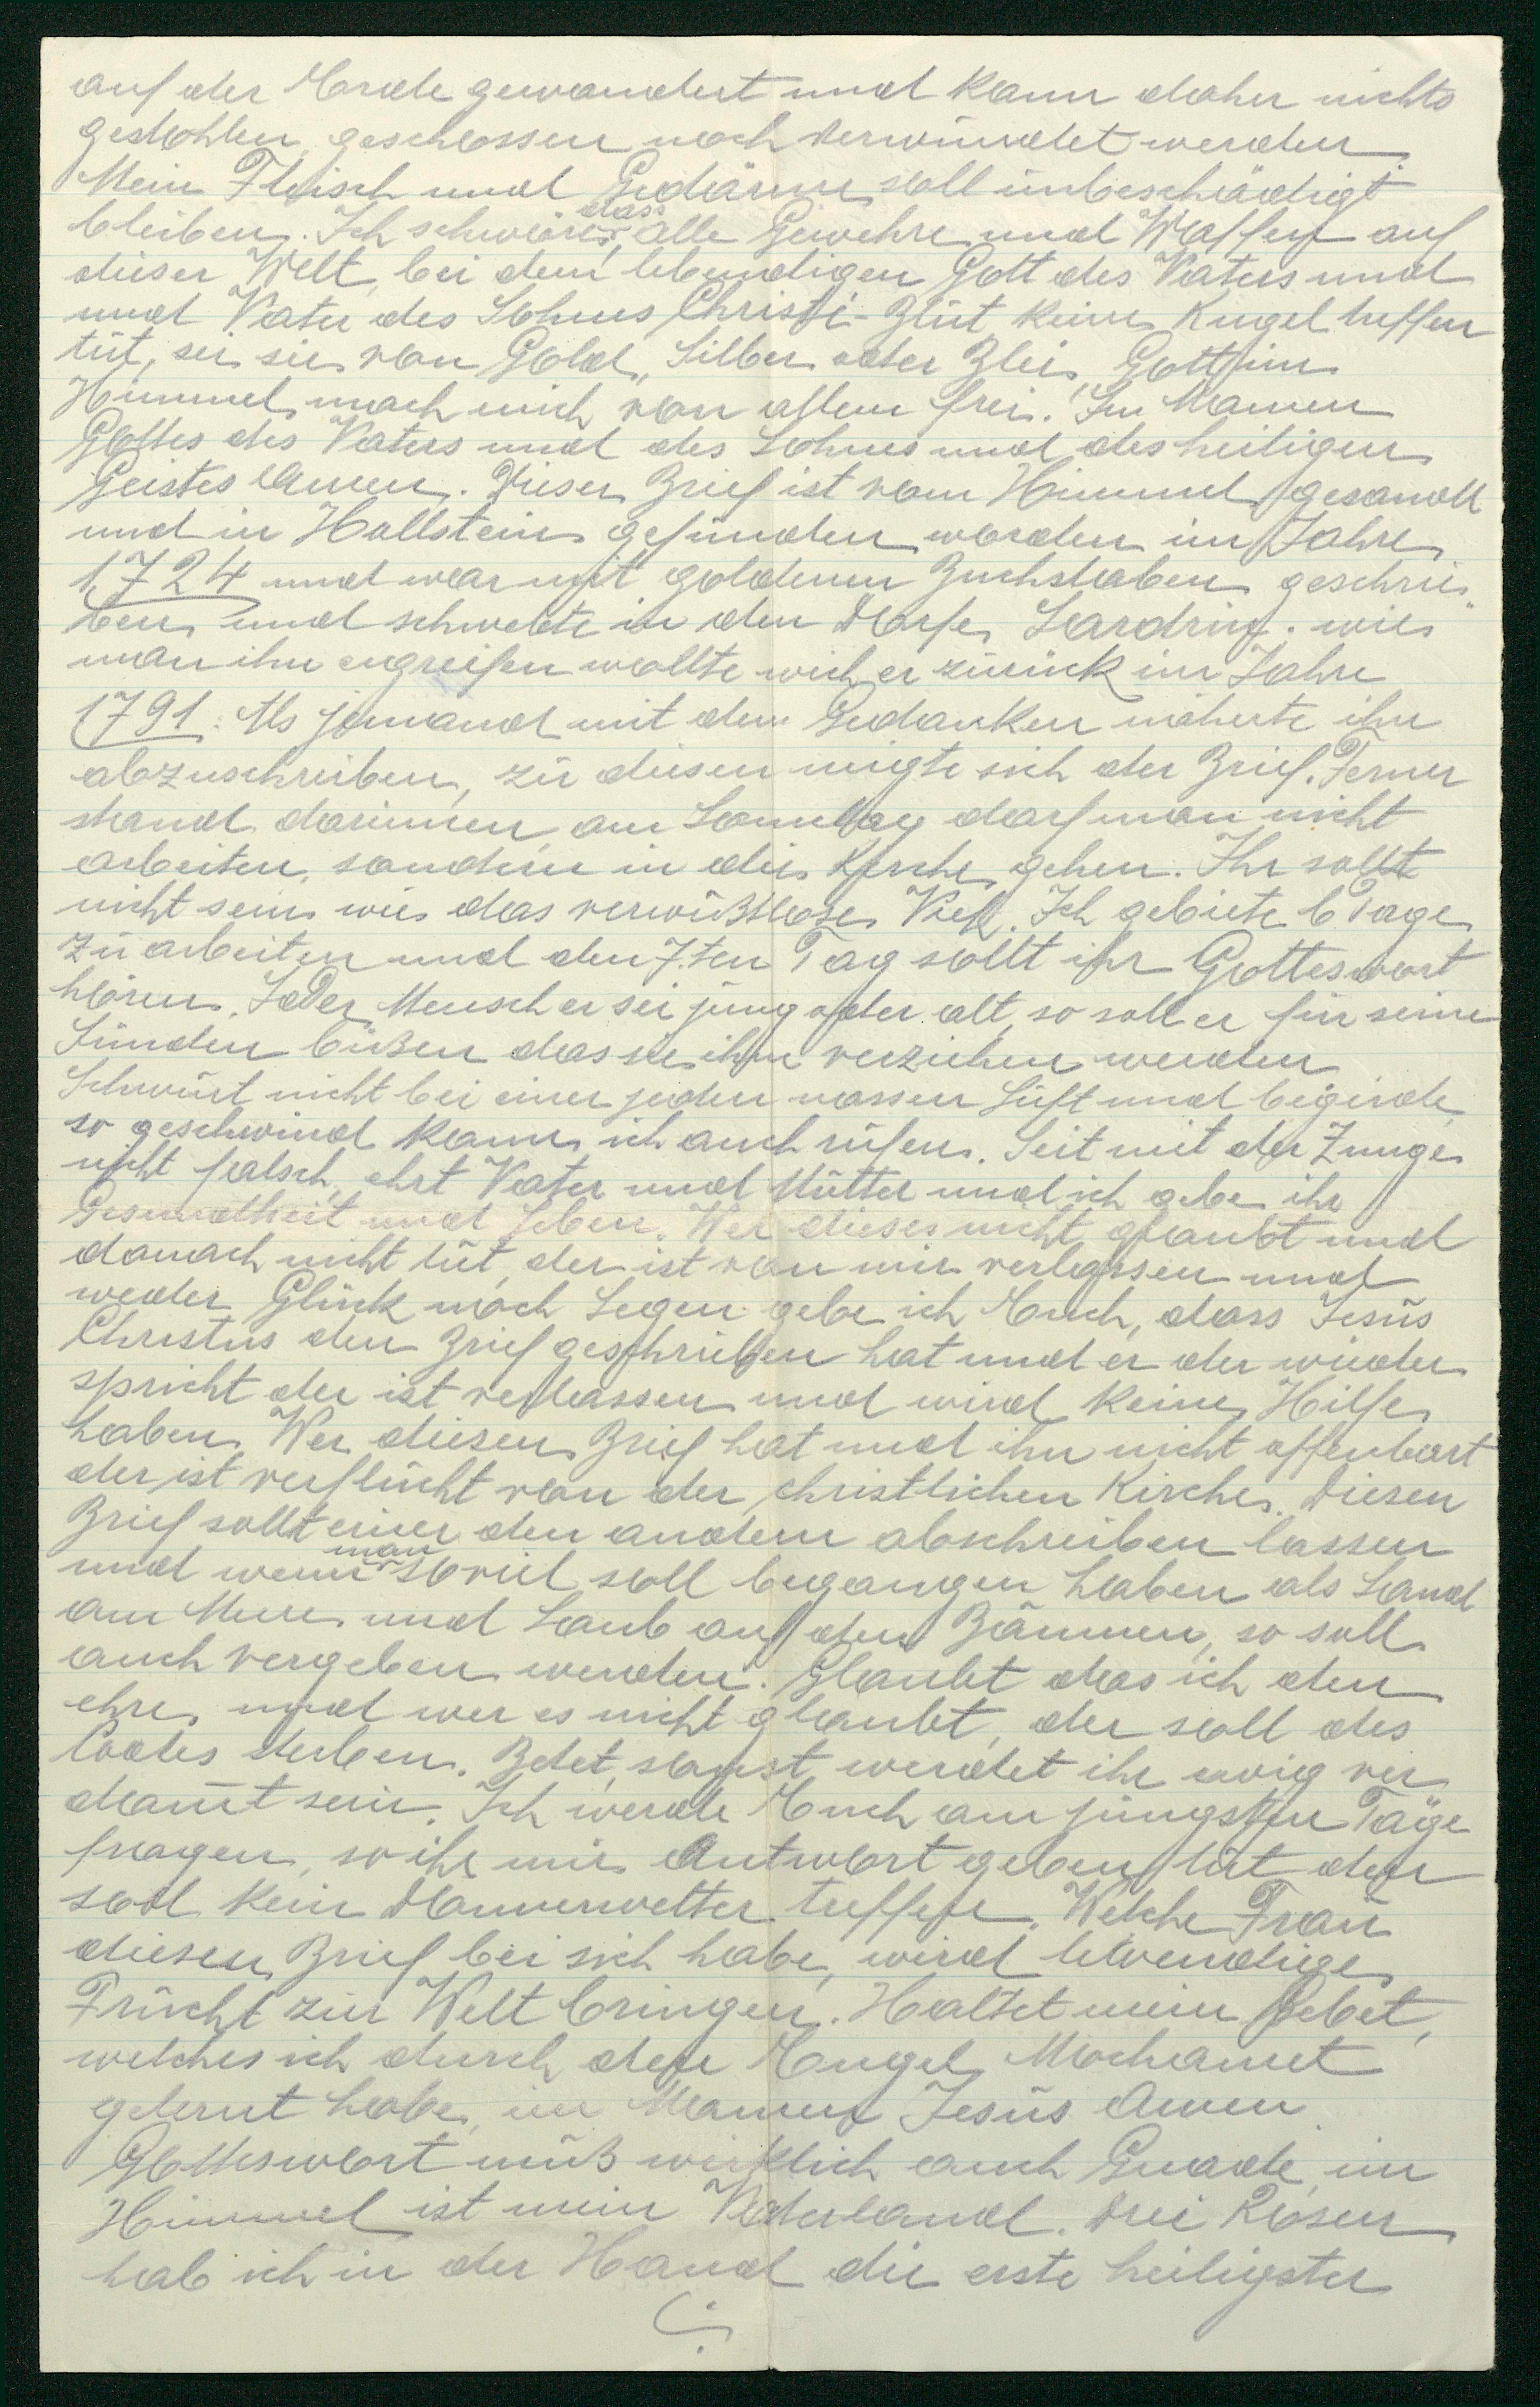 auf der Erde gewandert und kann daher nichts
gestohlen, geschossen noch verwundet werden.
Mein Fleisch und Gedärme soll unbeschädigt
bleiben. Ich schwöre, dass alle Gewehre und Waffen auf
dieser Welt, bei dem lebendigen Gott des Vaters und
und Vater des Sohnes Christi-Blut keine Kugel treffen
tut, sei sie von Gold, Silber oder Blei, Gott im
Himmel mach mich von allem frei. Im Namen
Gottes des Vaters und des Sohnes und des heiligen
Geistes Amen. Dieser Brief ist vom Himmel gesandt
und in Hollstein gefunden worden im Jahre
1724 und war mit goldenen Buchstaben geschrie-
ben und schwebte in den Dorfe Lardring. wie
man ihn ergreifen wollte wich er zurück im Jahre
1791. Als jemand mit dem Gedanken näherte ihn
abzuschreiben, zu diesen neigte sich der Brief. Ferner
stand darinnen, am Sonntag darf man nicht
arbeiten, sondern in die Kirche gehen. Ihr sollt
nicht sein wie das verwußtlose Vieh. Ich gebiete 6 Tage
zu arbeiten und den 7.ten Tag sollt ihr Gotteswort
hören. Jeder Mensch er sei jung oder alt, so soll er für seine
Sünden büßen das sie ihm verziehen werden
Schwört nicht bei einer jeden nassen Luft und begirde
so geschwind kann ich auch rufen. Seit mit der Zunge
nicht falsch, ehrt Vater und Mutter und ich gebe ihr
Gesundheit und Leben. Wer dieses nicht glaubt und
danach nicht tut, der ist von mir verlassen und
weder Glück noch Segen gebe ich Euch, dass Jesus
Christus den Brief geschrieben hat und er der wieder
spricht der ist verlassen und wird keine Hilfe
haben. Wer diesen Brief hat und ihn nicht offenbart
der ist verflucht von der christlichen Kirche. Diesen
Brief sollt einer den andern abschreiben lassen
und wenn man soviel soll begangen haben als Sand
am Meere und Laub auf den Bäumen, so soll
auch vergeben werden. Glaubt das ich den
ehre, und wer es nicht glaubt, der soll des
Todes sterben. Betet, sonst werdet ihr ewig ver
damt sein. Ich werde Euch am jüngsten Tage
fragen, so ihr mir Antwort geben tut den
soll kein Donnerwetter treffen. Welche Frau
diesen Brief bei sich habe, wird lebendige
Frucht zur Welt bringen. Haltet mein Gebet,
welches ich durch den Engel Mochamet
gelernt habe, im Namen Jesus Amen.
Gotteswort muß wirklich auch Gnade, im
Himmel ist mein Vaterland. Drei Rosen
hab ich in der Hand die erste heiligster